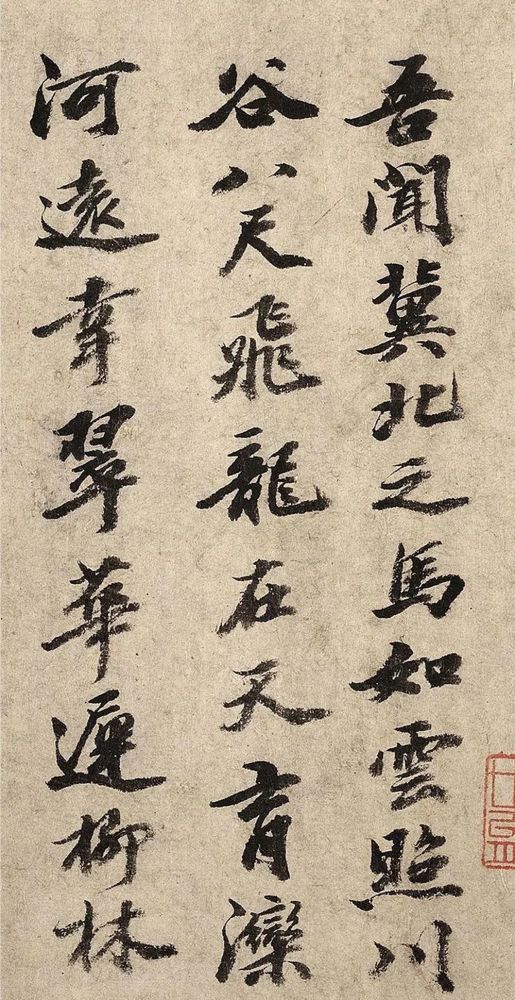 吾聞冀北之馬如雲照川
谷八尺飛龍在天育灤
河遠幸翠華遲柳林